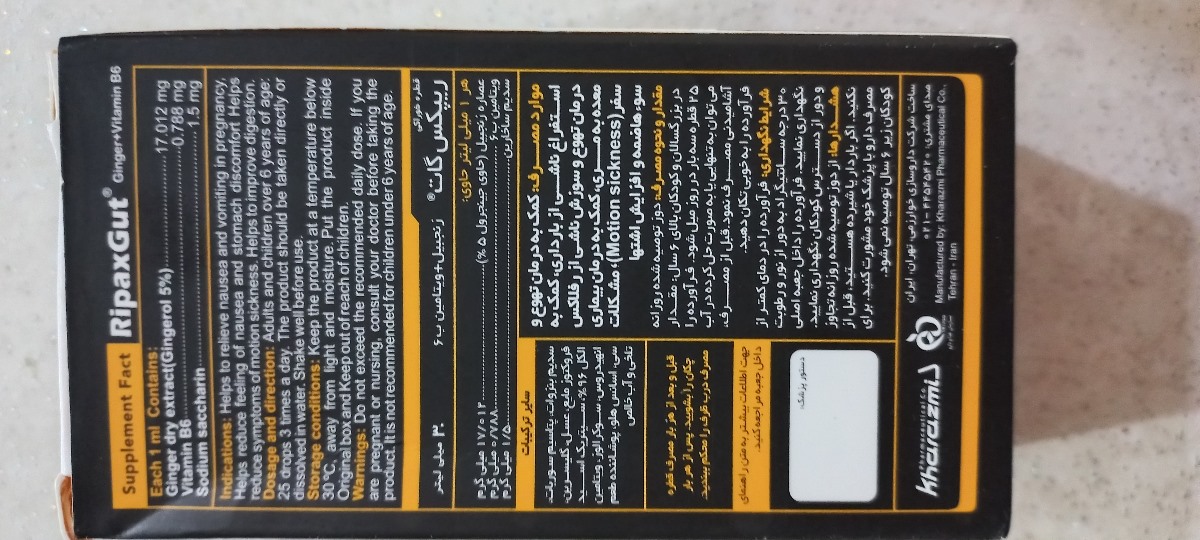 Supplement Fact
RipaxGut® Ginger+Vitamin B6
Each 1 ml Contains:
Ginger dry extract(Gingerol 5%)..........17.012 mg
Vitamin B6..........0.788 mg
Sodium saccharin..........1.5 mg
Indications: Helps to relieve nausea and vomiting in pregnancy.
Helps reduce feeling of nausea and stomach discomfort Helps
reduce symptoms of motion sickness. Helps to improve digestion.
Dosage and direction: Adults and children over 6 years of age:
25 drops 3 times a day. The product should be taken directly or
dissolved in water. Shake well before use.
Storage conditions: Keep the product at a temperature below
30 °C, away from light and moisture. Put the product inside
Original box and Keep out of reach of children.
Warnings: Do not exceed the recommended daily dose. If you
are pregnant or nursing, consult your doctor before taking the
product. It is not recommended for children under 6 years of age.
قطره خوراکی
ریپکس گات® زنجبیل+ویتامین ب۶
۳۰ میلی لیتر
هر ۱ میلی لیتر حاوی:
عصاره زنجبیل (حاوی جینجرول ۵ %)..........۱۷/۰۱۲ میلی گرم
ویتامین ب۶..........۰/۷۸۸ میلی گرم
سدیم ساخارین..........۱/۵ میلی گرم
موارد مصرف: کمک به درمان تهوع و
استفراغ ناشی از بارداری، کمک به
درمان تهوع و سوزش ناشی از رفلاکس
معده به مری، کمک به درمان بیماری
سفر (Motion sickness)، مشکلات
سوء هاضمه و افزایش اشتها
مقدار و نحوه مصرف: دوز توصیه شده روزانه
در بزرگسالان و کودکان بالای ۶ سال، مقدار
۲۵ قطره سه بار در روز میل شود. فرآورده را
می توان به تنهایی یا به صورت حل کرده در آب
آشامیدنی مصرف نمود. قبل از مصرف،
فرآورده را به خوبی تکان دهید.
شرایط نگهداری: فرآورده را در دمای کمتر از
۳۰ درجه سانتیگراد به دور از نور و رطوبت
نگهداری نمایید. فرآورده را داخل جعبه اصلی
و دور از دسترس کودکان نگهداری نمایید.
هشدارها: از دوز توصیه شده روزانه تجاوز
نکنید. اگر باردار یا شیرده هستید، قبل از
مصرف دارو با پزشک خود مشورت کنید. برای
کودکان زیر ۶ سال توصیه نمی شود.
سایر ترکیبات
سدیم بنزوات، پتاسیم سوربات،
فروکتوز مایع، عسل، گلیسیرین،
الکل ۹۶%، سیتریک اسید
انهیدروس، سوکرالوز، ویتامین
سی، اسانس هلو، پوشاننده طعم
تلخی و آب خالص
قبل و بعد از هر بار مصرف قطره
چکان را بشویید. پس از هر بار
مصرف درب ظرف را محکم ببندید.
جهت اطلاعات بیشتر به متن راهنمای
داخل جعبه مراجعه کنید.
دستور پزشک:
ساخت شرکت داروسازی خوارزمی تهران، ایران
صدای مشتری: ۴۴۵۴۵۴۴۰-۰۲۱
Manufactured by: Kharazmi Pharmaceutical Co.,
Tehran - Iran
kharazmi
Pharmaceutical Co.